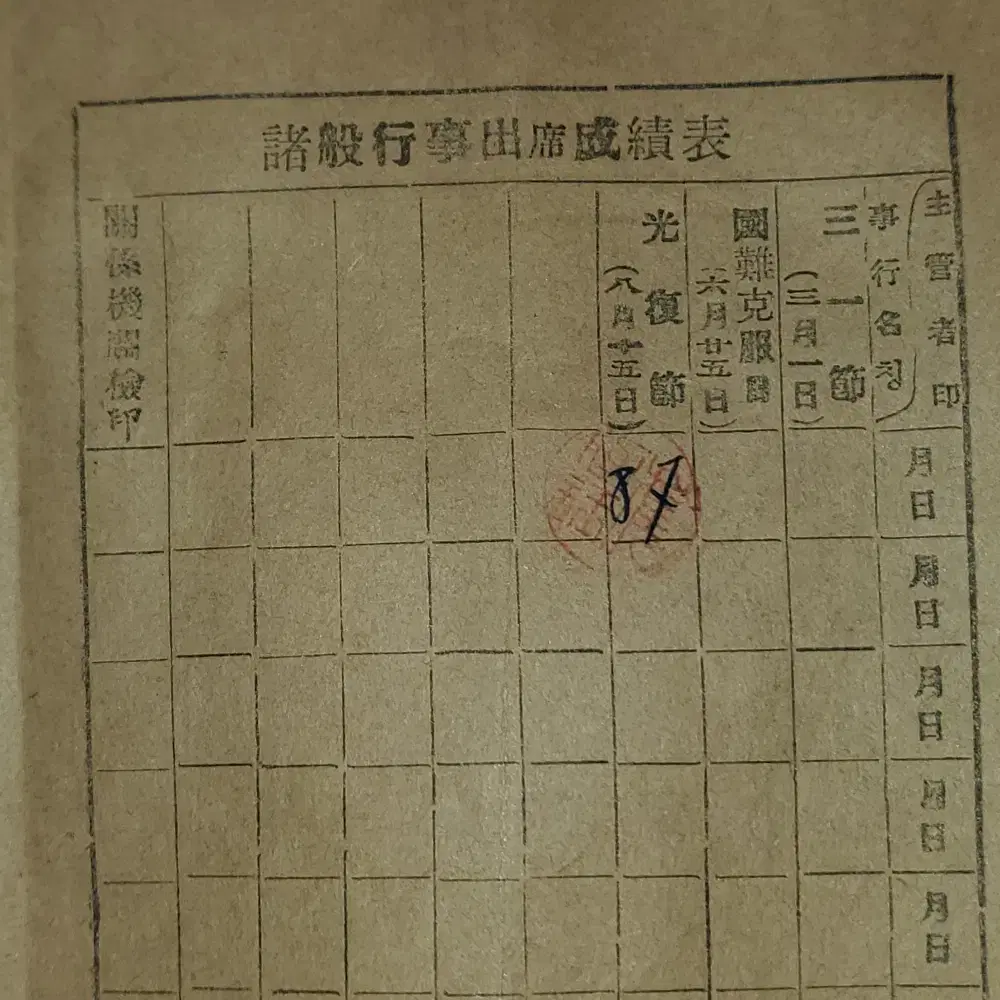 諸般行事出席成績表
主管者印
事行名칭
三一節
(三月一日)
國難克服日
(六月廿五日)
光復節
(八月十五日)
關係機關檢印
月日
87
月日
月日
月日
月日